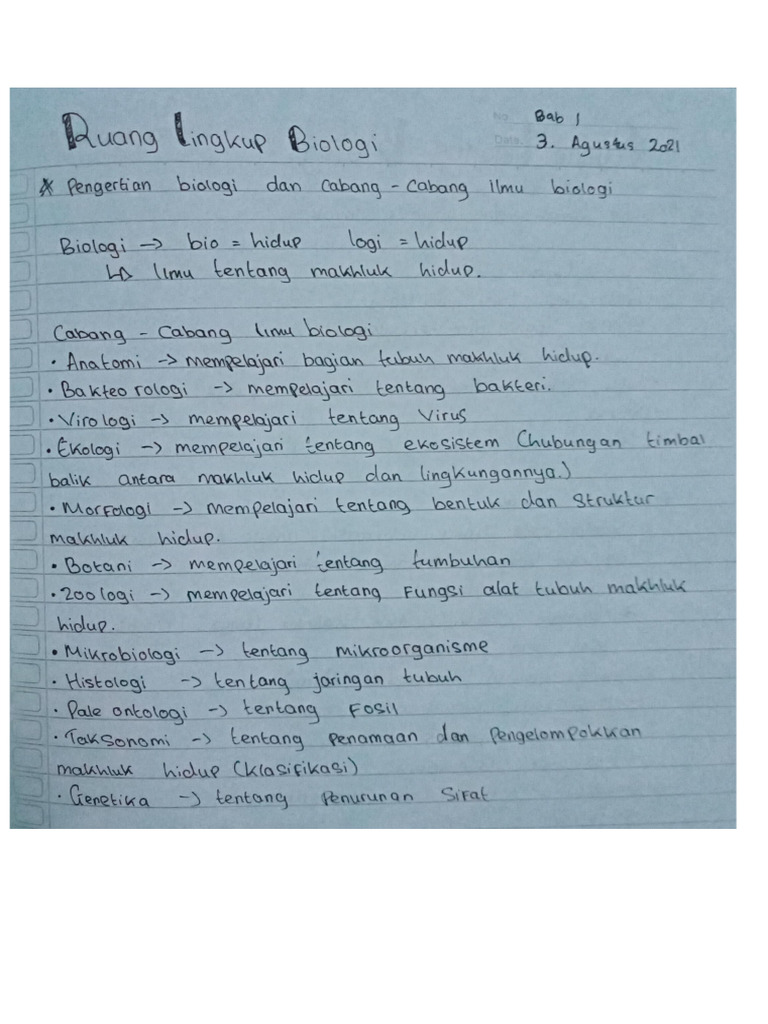 Ruang Lingkup Biologi
No. Bab 1
Date. 3. Agustus 2021
* Pengertian biologi dan Cabang - Cabang ilmu biologi
Biologi -> bio = hidup logi = hidup
↳ Ilmu tentang makhluk hidup.
Cabang - Cabang Ilmu biologi
• Anatomi -> mempelajari bagian tubuh makhluk hidup.
• Bakteo rologi -> mempelajari tentang bakteri.
• Virologi -> mempelajari tentang Virus
• Ekologi -> mempelajari tentang ekosistem (hubungan timbal
balik antara makhluk hidup dan lingkungannya.)
• Morfologi -> mempelajari tentang bentuk dan Struktur
makhluk hidup.
• Botani -> mempelajari tentang tumbuhan
• Zoologi -> mempelajari tentang Fungsi alat tubuh makhluk
hidup.
• Mikrobiologi -> tentang mikroorganisme
• Histologi -> tentang jaringan tubuh
• Pale ontologi -> tentang Fosil
• Taksonomi -> tentang penamaan dan Pengelompokkan
makhluk hidup (Klasifikasi)
• Genetika -> tentang Penurunan Sifat